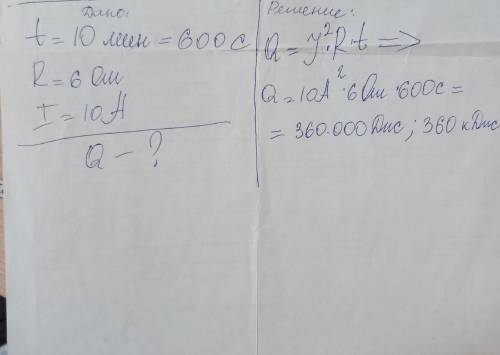 Дано:
t = 10 мин = 600 с
R = 6 Ом
I = 10 А
Q – ?
Решение:
Q = У²·R·t ⟹
Q = 10А²·6 Ом·600с =
= 360.000 Дж; 360 кДж